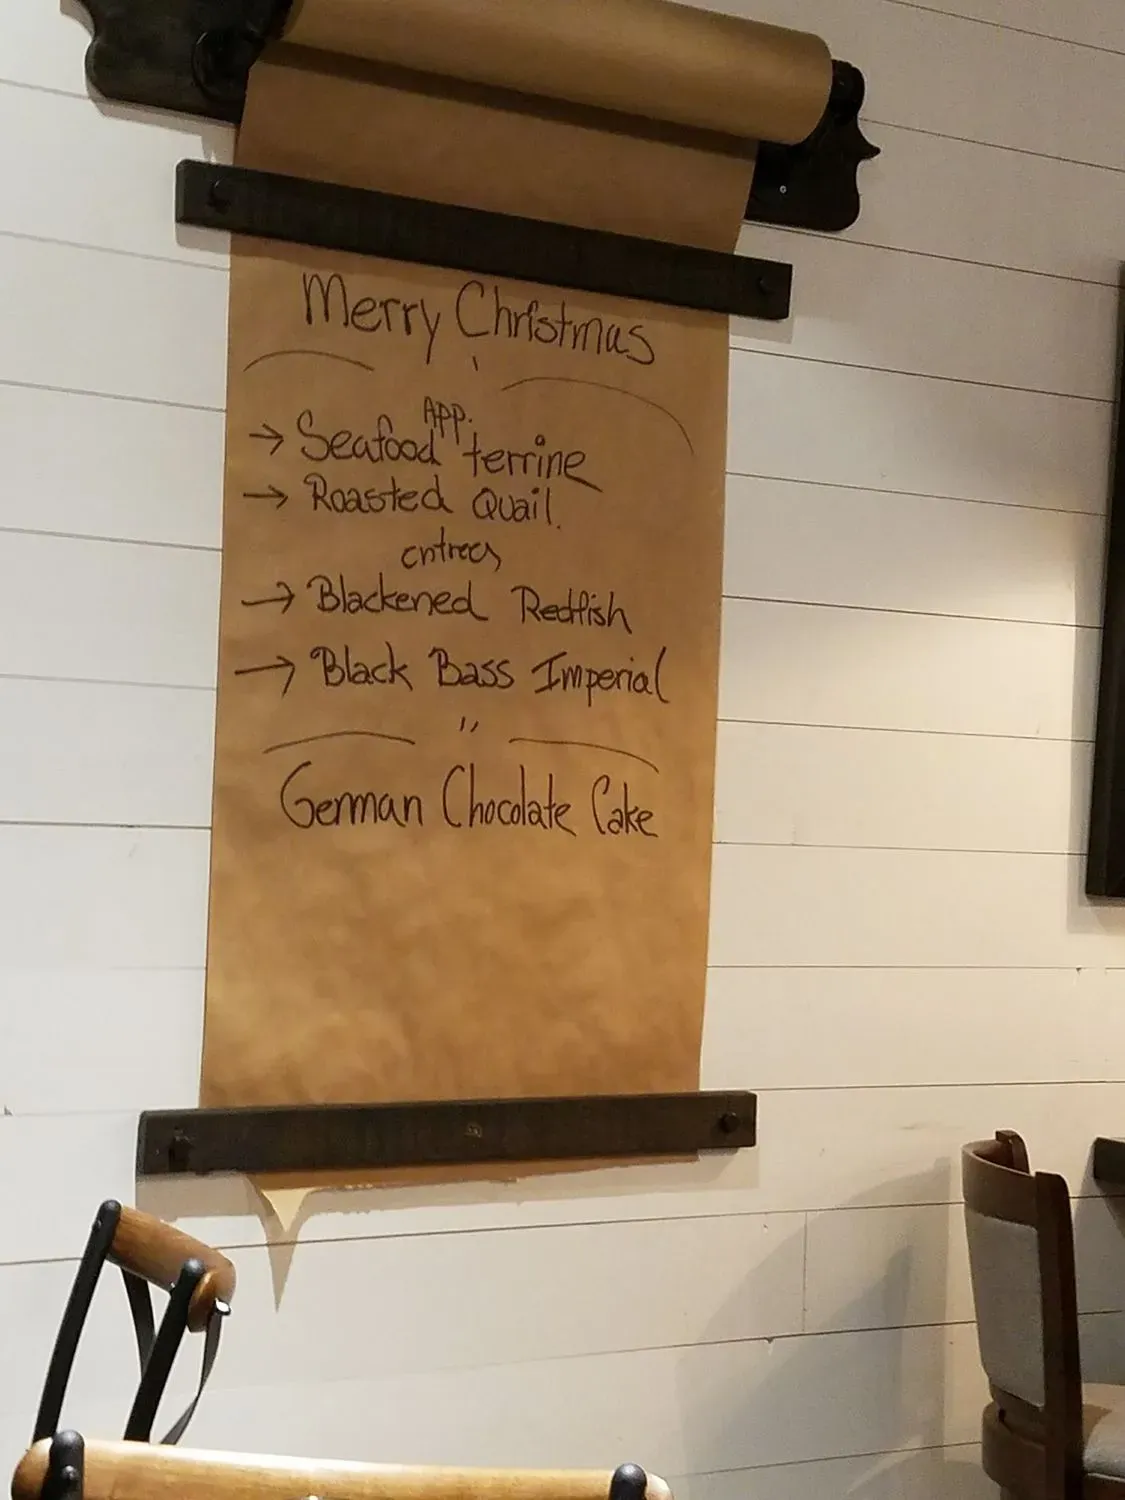 Merry Christmas
App.
→ Seafood terrine
→ Roasted Quail
entrees
→ Blackened Redfish
→ Black Bass Imperial
German Chocolate Cake